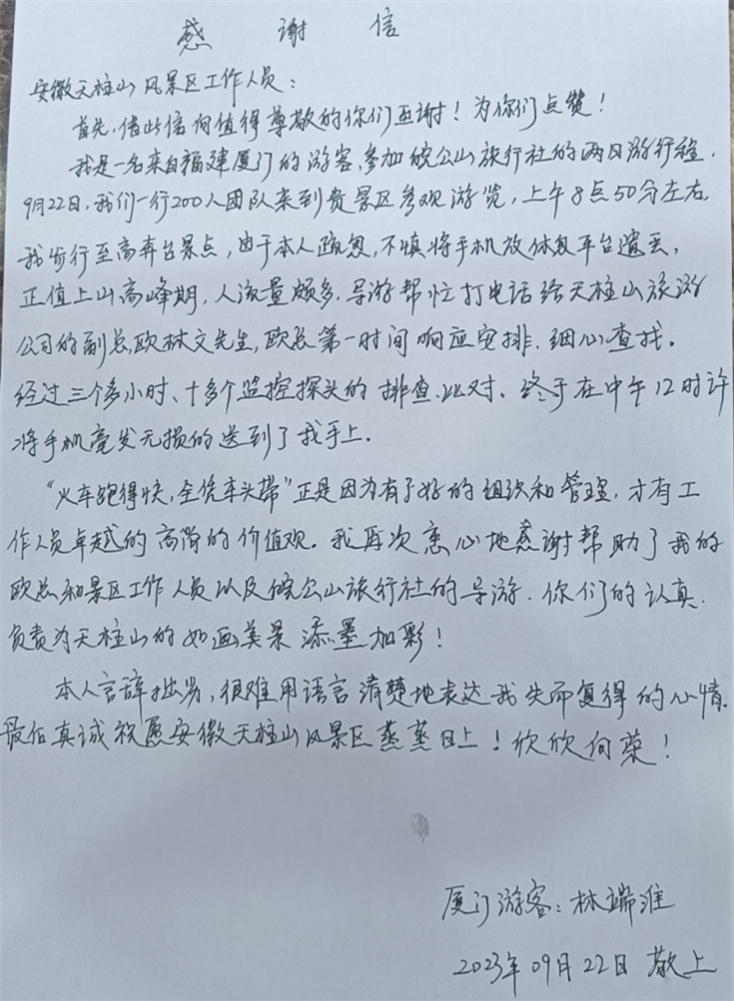 感 谢 信
安徽天柱山风景区工作人员：
首先，借此信向值得尊敬的你们致谢！为你们点赞！
我是一名来自福建厦门的游客，参加皖公山旅行社的两日游行程，
9月22日，我们一行200人团队来到贵景区参观游览，上午8点50分左右，
我步行至高奔台景点，由于本人疏忽，不慎将手机放休息平台遗丢，
正值上山高峰期，人流量颇多，导游帮忙打电话给天柱山旅游
公司的副总欧林文先生，欧总第一时间响应安排、细心查找。
经过三个多小时、十多个监控探头的排查、比对、终于在中午12时许
将手机毫发无损的送到了我手上。
“火车跑得快，全凭车头带”正是因为有了好的组织和管理，才有工
作人员卓越的高尚的价值观。我再次衷心地感谢帮助了我的
欧总和景区工作人员以及皖公山旅行社的导游，你们的认真、
负责为天柱山的如画美景添墨加彩！
本人言辞拙劣，很难用语言清楚地表达我失而复得的心情，
最后真诚祝愿安徽天柱山风景区蒸蒸日上！欣欣向荣！
厦门游客：林端淮
2023年09月22日 敬上